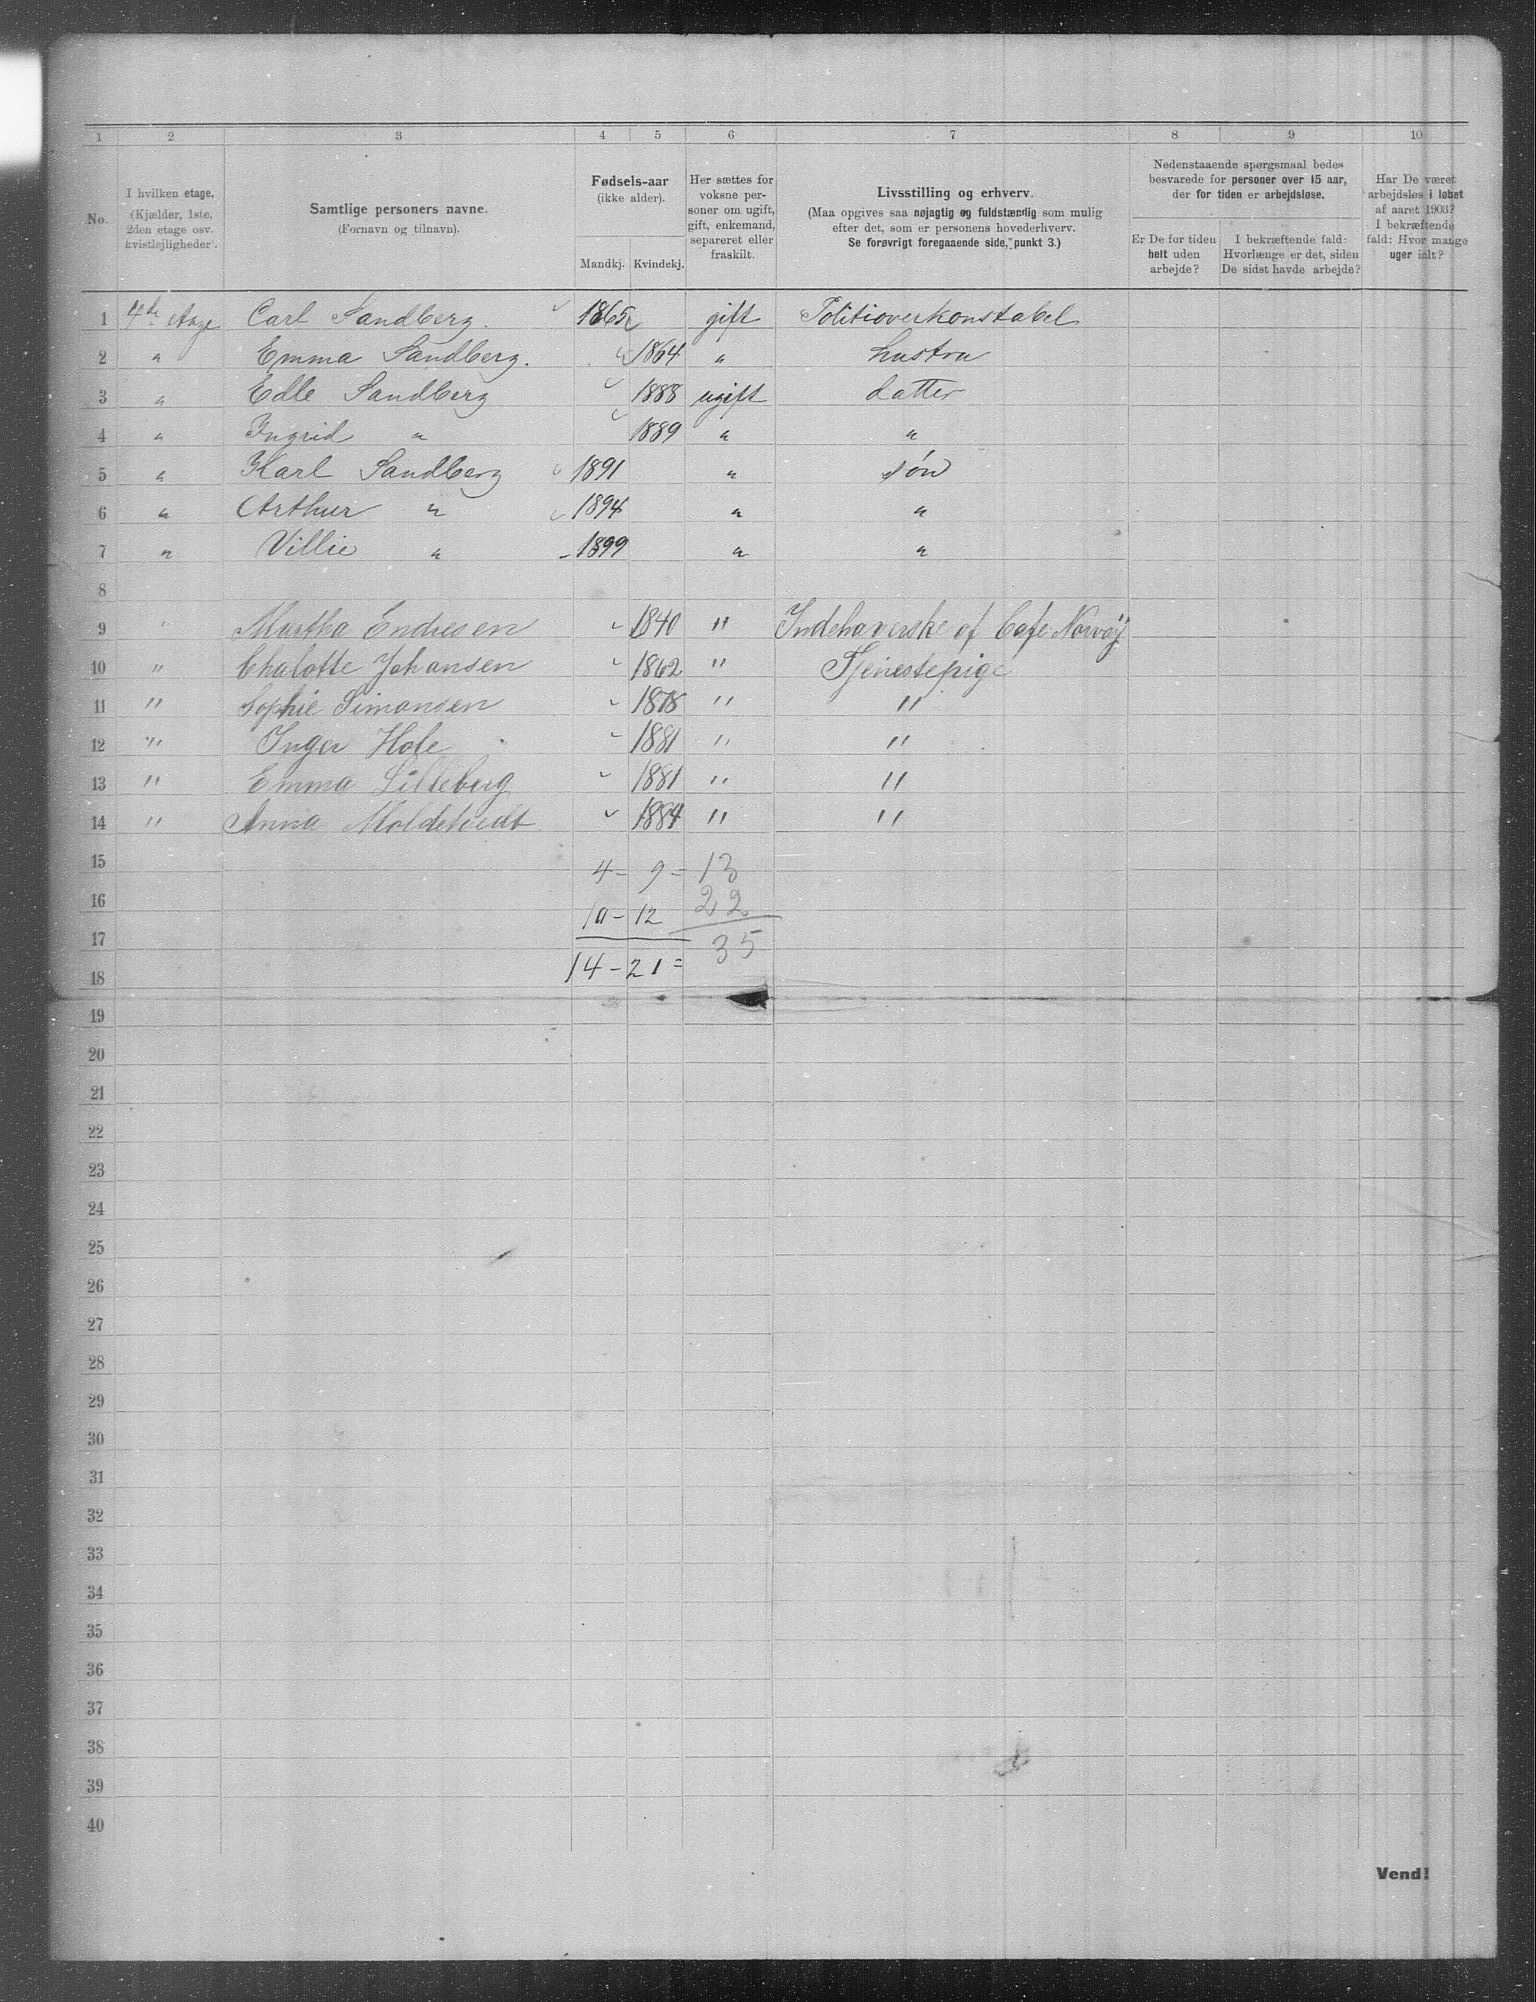 1 2 3 4 5 6 7 8 9 10
No.
I hvilken etage.
(Kjælder, 1ste,
2den etage osv.
kvistlejligheder.
Samtlige personers navne.
(Fornavn og tilnavn).
Fødsels-aar
(ikke alder).
Mandkj. Kvindekj.
Her sættes for
voksne per-
soner om ugift,
gift, enkemand,
separeret eller
fraskilt.
Livsstilling og erhverv.
(Maa opgives saa nøjagtig og fuldstændig som mulig
efter det, som er personens hovederhverv.
Se forøvrigt foregaaende side, punkt 3.)
Nedenstaaende spørgsmaal bedes
besvarede for personer over 15 aar,
der for tiden er arbejdsløse.
Er De for tiden
helt uden
arbejde?
I bekræftende fald:
Hvorlænge er det, siden
De sidst havde arbejde?
Har De været
arbejdsløs i løbet
af aaret 1903?
I bekræftende
fald: Hvor mange
uger ialt?
1 4de Etage Carl Sandberg. 1865 gift Politioverkonstabel
2 " Emma Sandberg. 1864 " hustru
3 " Edle Sandberg 1888 ugift datter
4 " Ingrid " 1889 " "
5 " Karl Sandberg 1891 " søn
6 " Arthur " 1894 " "
7 " Villie " 1899 " "
8
9 " Martha Endresen 1840 " Indehaverske af Cafe Norvøy
10 " Chalotte Johansen 1862 " Tjenestepige
11 " Sophie Simonsen 1878 " "
12 " Inger Hole 1881 " "
13 " Emma Lilleberg 1881 " "
14 " Anna 1884 " "
15 4 - 9 = 13
16 10 - 12 22
17 35
18 14 - 21 =
19
20
21
22
23
24
25
26
27
28
29
30
31
32
33
34
35
36
37
38
39
40
Vend!